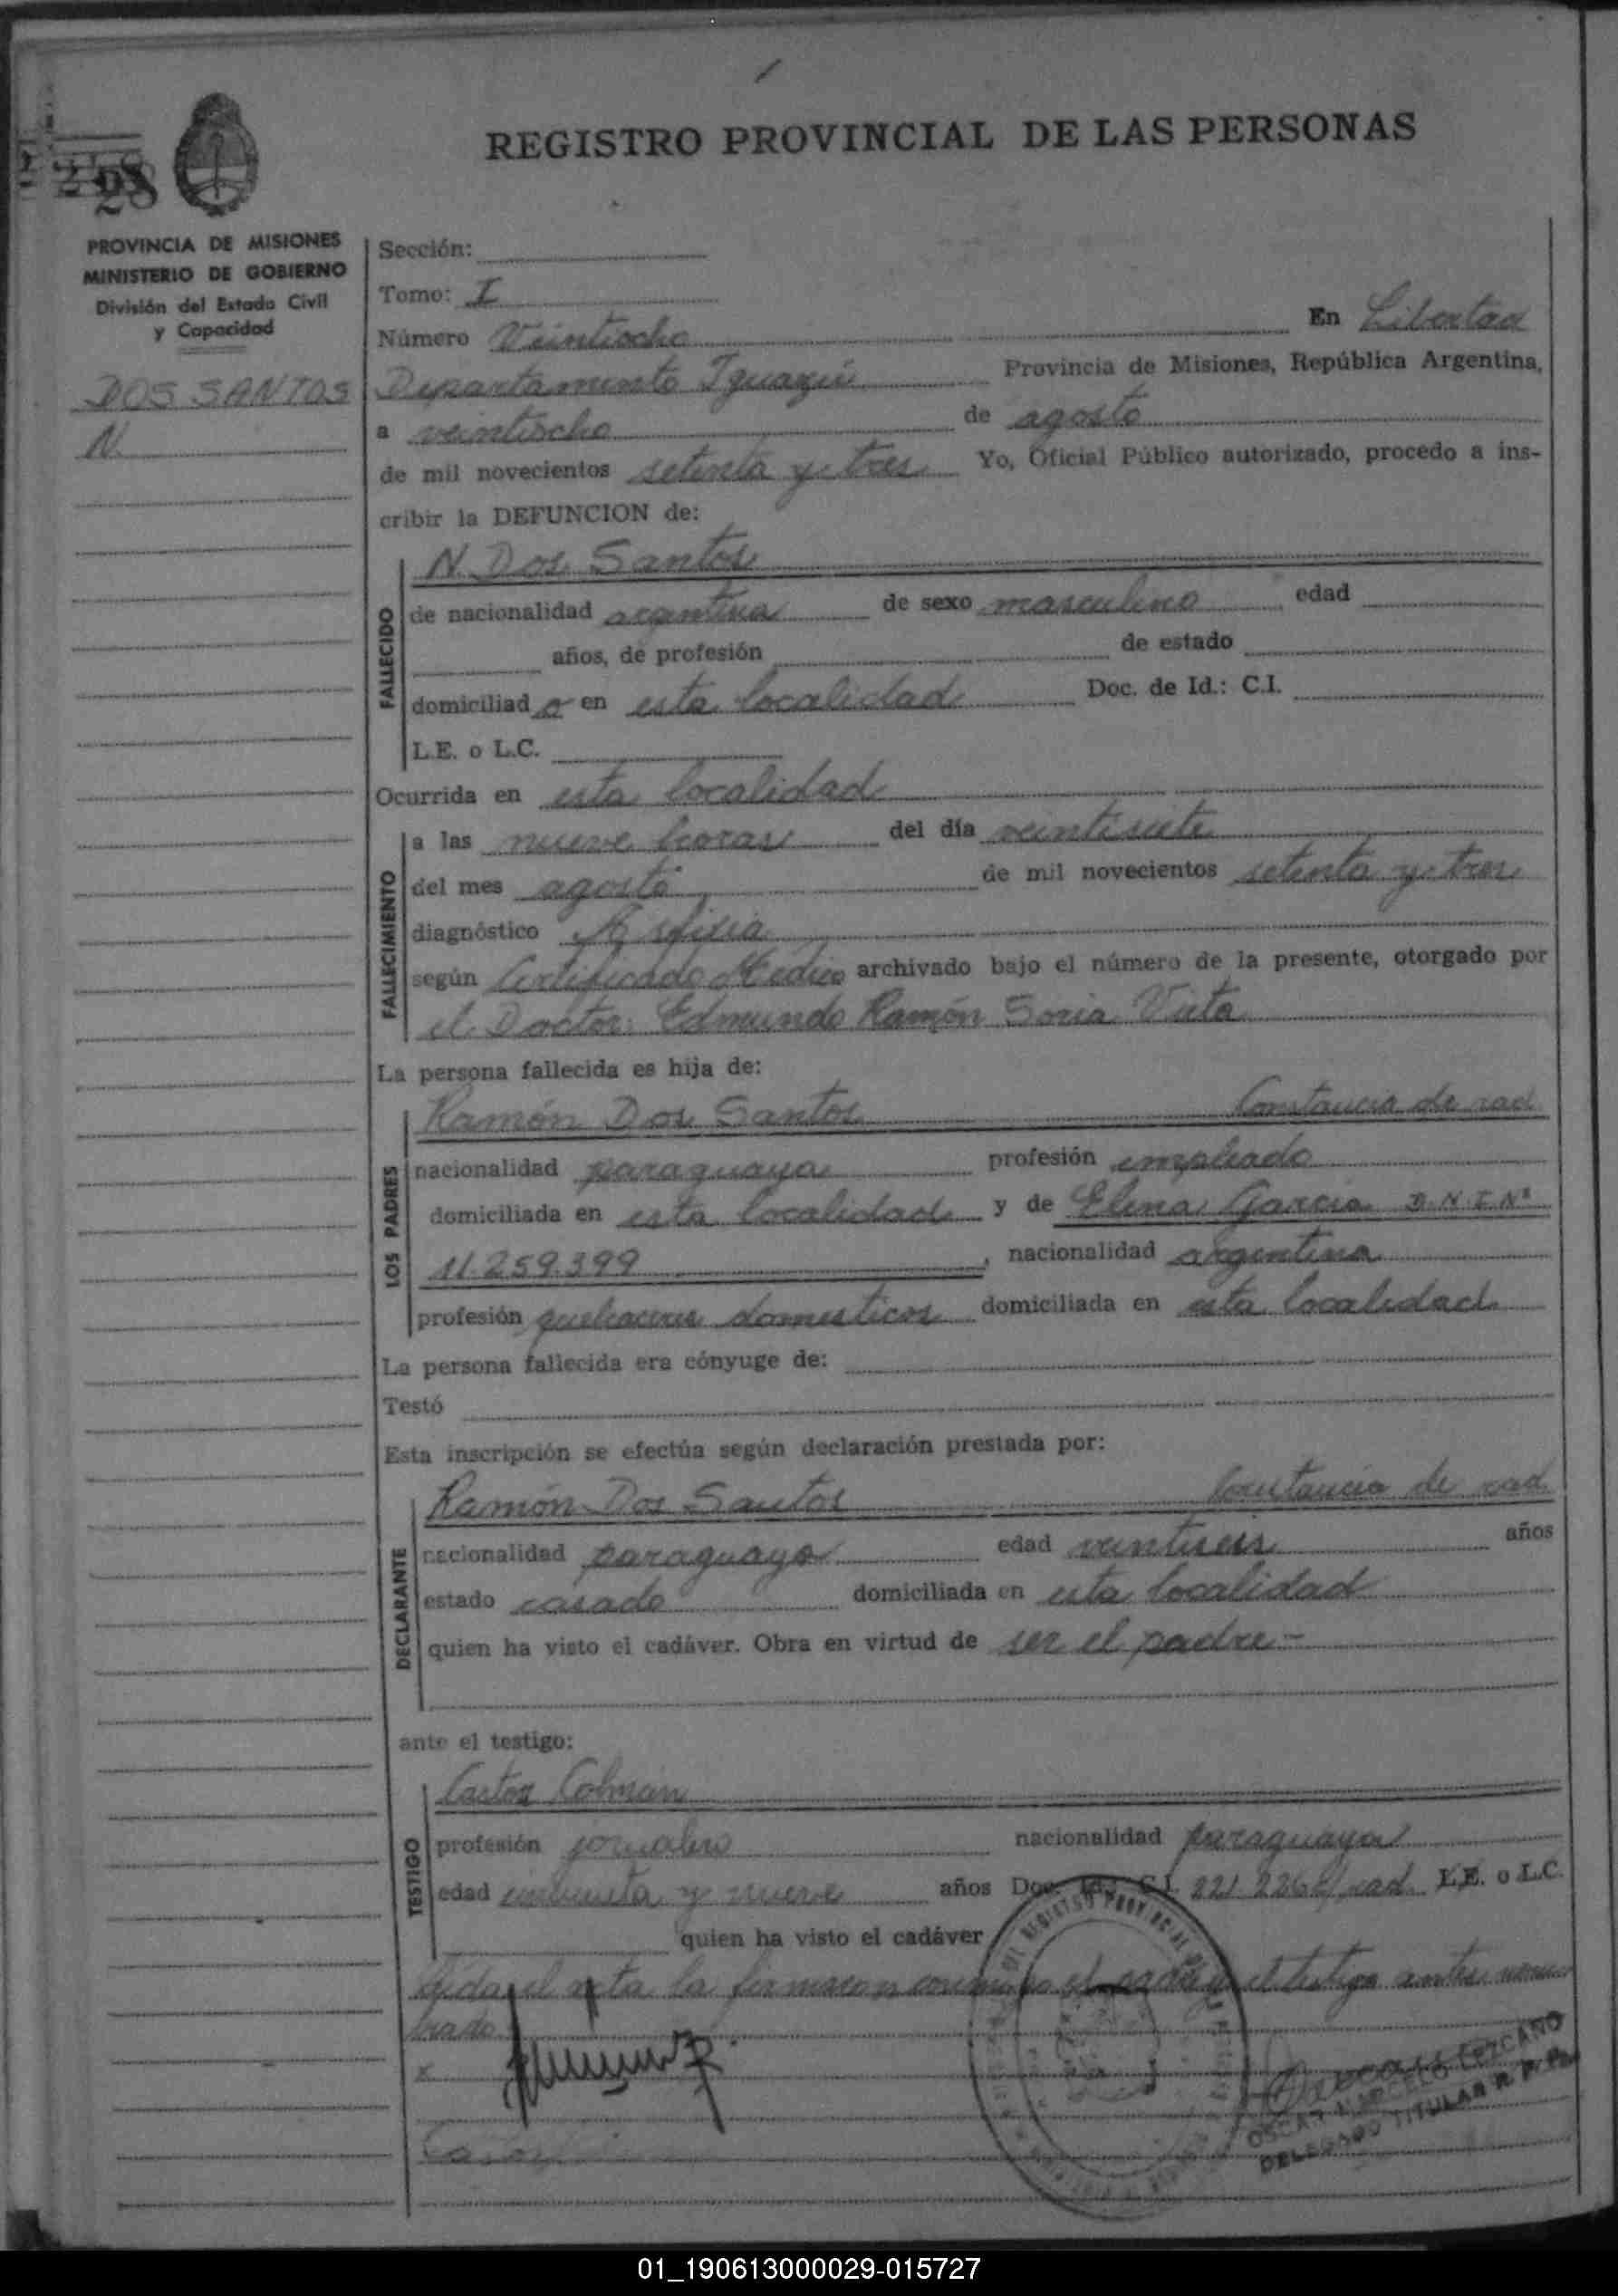 REGISTRO PROVINCIAL DE LAS PERSONAS
28
PROVINCIA DE MISIONES
MINISTERIO DE GOBIERNO
División del Estado Civil
y Capacidad
DOS SANTOS
N.
Sección:
Tomo: I
Número Veintiocho En Libertad
Departamento Iguazú Provincia de Misiones, República Argentina,
a veintiocho de agosto
de mil novecientos setenta y tres Yo, Oficial Público autorizado, procedo a ins-
cribir la DEFUNCION de:
N. Dos Santos
FALLECIDO
de nacionalidad argentina de sexo masculino edad
años, de profesión de estado
domiciliad o en esta localidad Doc. de Id.: C.I.
L.E. o L.C.
Ocurrida en esta localidad
FALLECIMIENTO
a las nueve horas del día veintisiete
del mes agosto de mil novecientos setenta y tres
diagnóstico Asfixia
según Certificado Médico archivado bajo el número de la presente, otorgado por
el Doctor: Edmundo Ramón Soria Vieta
La persona fallecida es hija de:
LOS PADRES
Ramón Dos Santos Constancia de rad
nacionalidad paraguaya profesión empleado
domiciliada en esta localidad y de Elena Garcia D.N.I.Nº
11.259.399, nacionalidad argentina
profesión quehaceres domesticos domiciliada en esta localidad
La persona fallecida era cónyuge de:
Testó
Esta inscripción se efectúa según declaración prestada por:
DECLARANTE
Ramón Dos Santos Constancia de rad
nacionalidad paraguayo edad veintiseis años
estado casado domiciliada en esta localidad
quien ha visto el cadáver. Obra en virtud de ser el padre-
ante el testigo:
TESTIGO
Castor Colman
profesión jornalero nacionalidad paraguaya
edad cincuenta y nueve años Doc. Id.: C.I. 221.226 rad. L.E. o L.C.
quien ha visto el cadáver
Leida el acta la firman conmigo el padre y el testigo antes nom
brado
x
OSCAR MARCELO LEZCANO
DELEGADO TITULAR R. P. P.
01_190613000029-015727